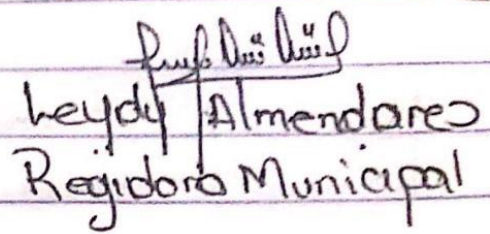 Leydy Almendares
Regidora Municipal